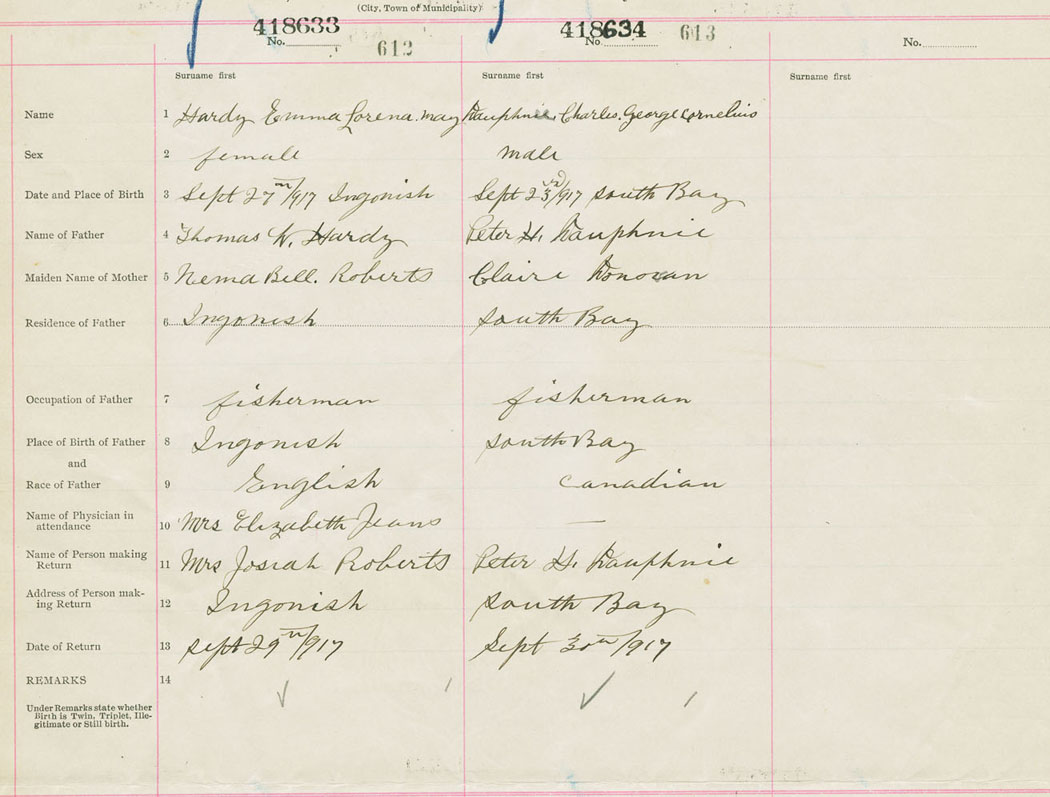 (City, Town of Municipality)
418633 418634
No. 612 No. 613 No.
Surname first Surname first Surname first
Name 1 Hardy Emma Lorena. May Dauphnie, Charles. George Cornelius
Sex 2 female male
Date and Place of Birth 3 Sept 27th/917 Ingonish Sept 23rd/917 South Bay
Name of Father 4 Thomas W. Hardy Peter H. Dauphnie
Maiden Name of Mother 5 Nema Bell. Roberts Claire Donovan
Residence of Father 6 Ingonish South Bay
Occupation of Father 7 fisherman fisherman
Place of Birth of Father 8 Ingonish South Bay
and
Race of Father 9 English Canadian
Name of Physician in
attendance 10 Mrs Elizabeth Jeans —
Name of Person making
Return 11 Mrs Josiah Roberts Peter H. Dauphnie
Address of Person mak-
ing Return 12 Ingonish South Bay
Date of Return 13 Sept 29th/917 Sept 30th/917
REMARKS 14
Under Remarks state whether
Birth is Twin, Triplet, Ille-
gitimate or Still birth.